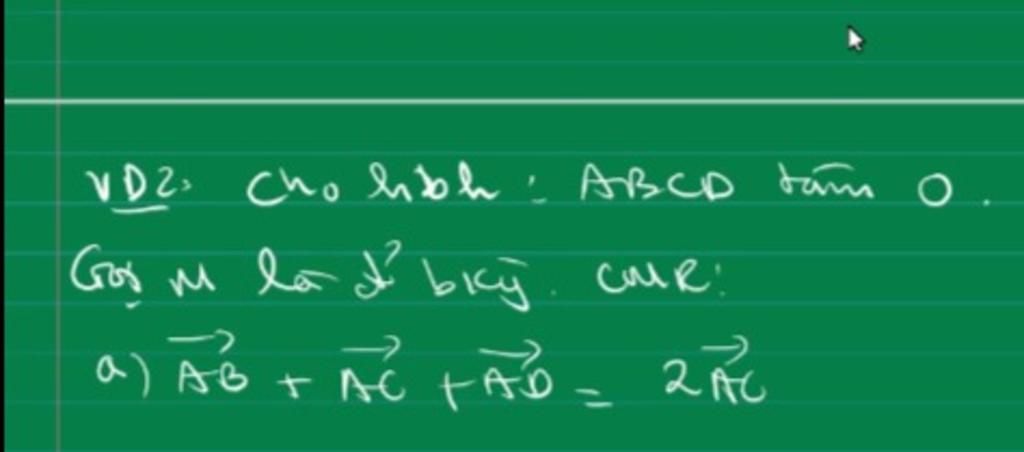 VD2: Cho hbh: ABCD tâm O.
Gọi M là đ' bkỳ. CMR:
a) $\overrightarrow{AB} + \overrightarrow{AC} + \overrightarrow{AD} = 2\overrightarrow{AC}$